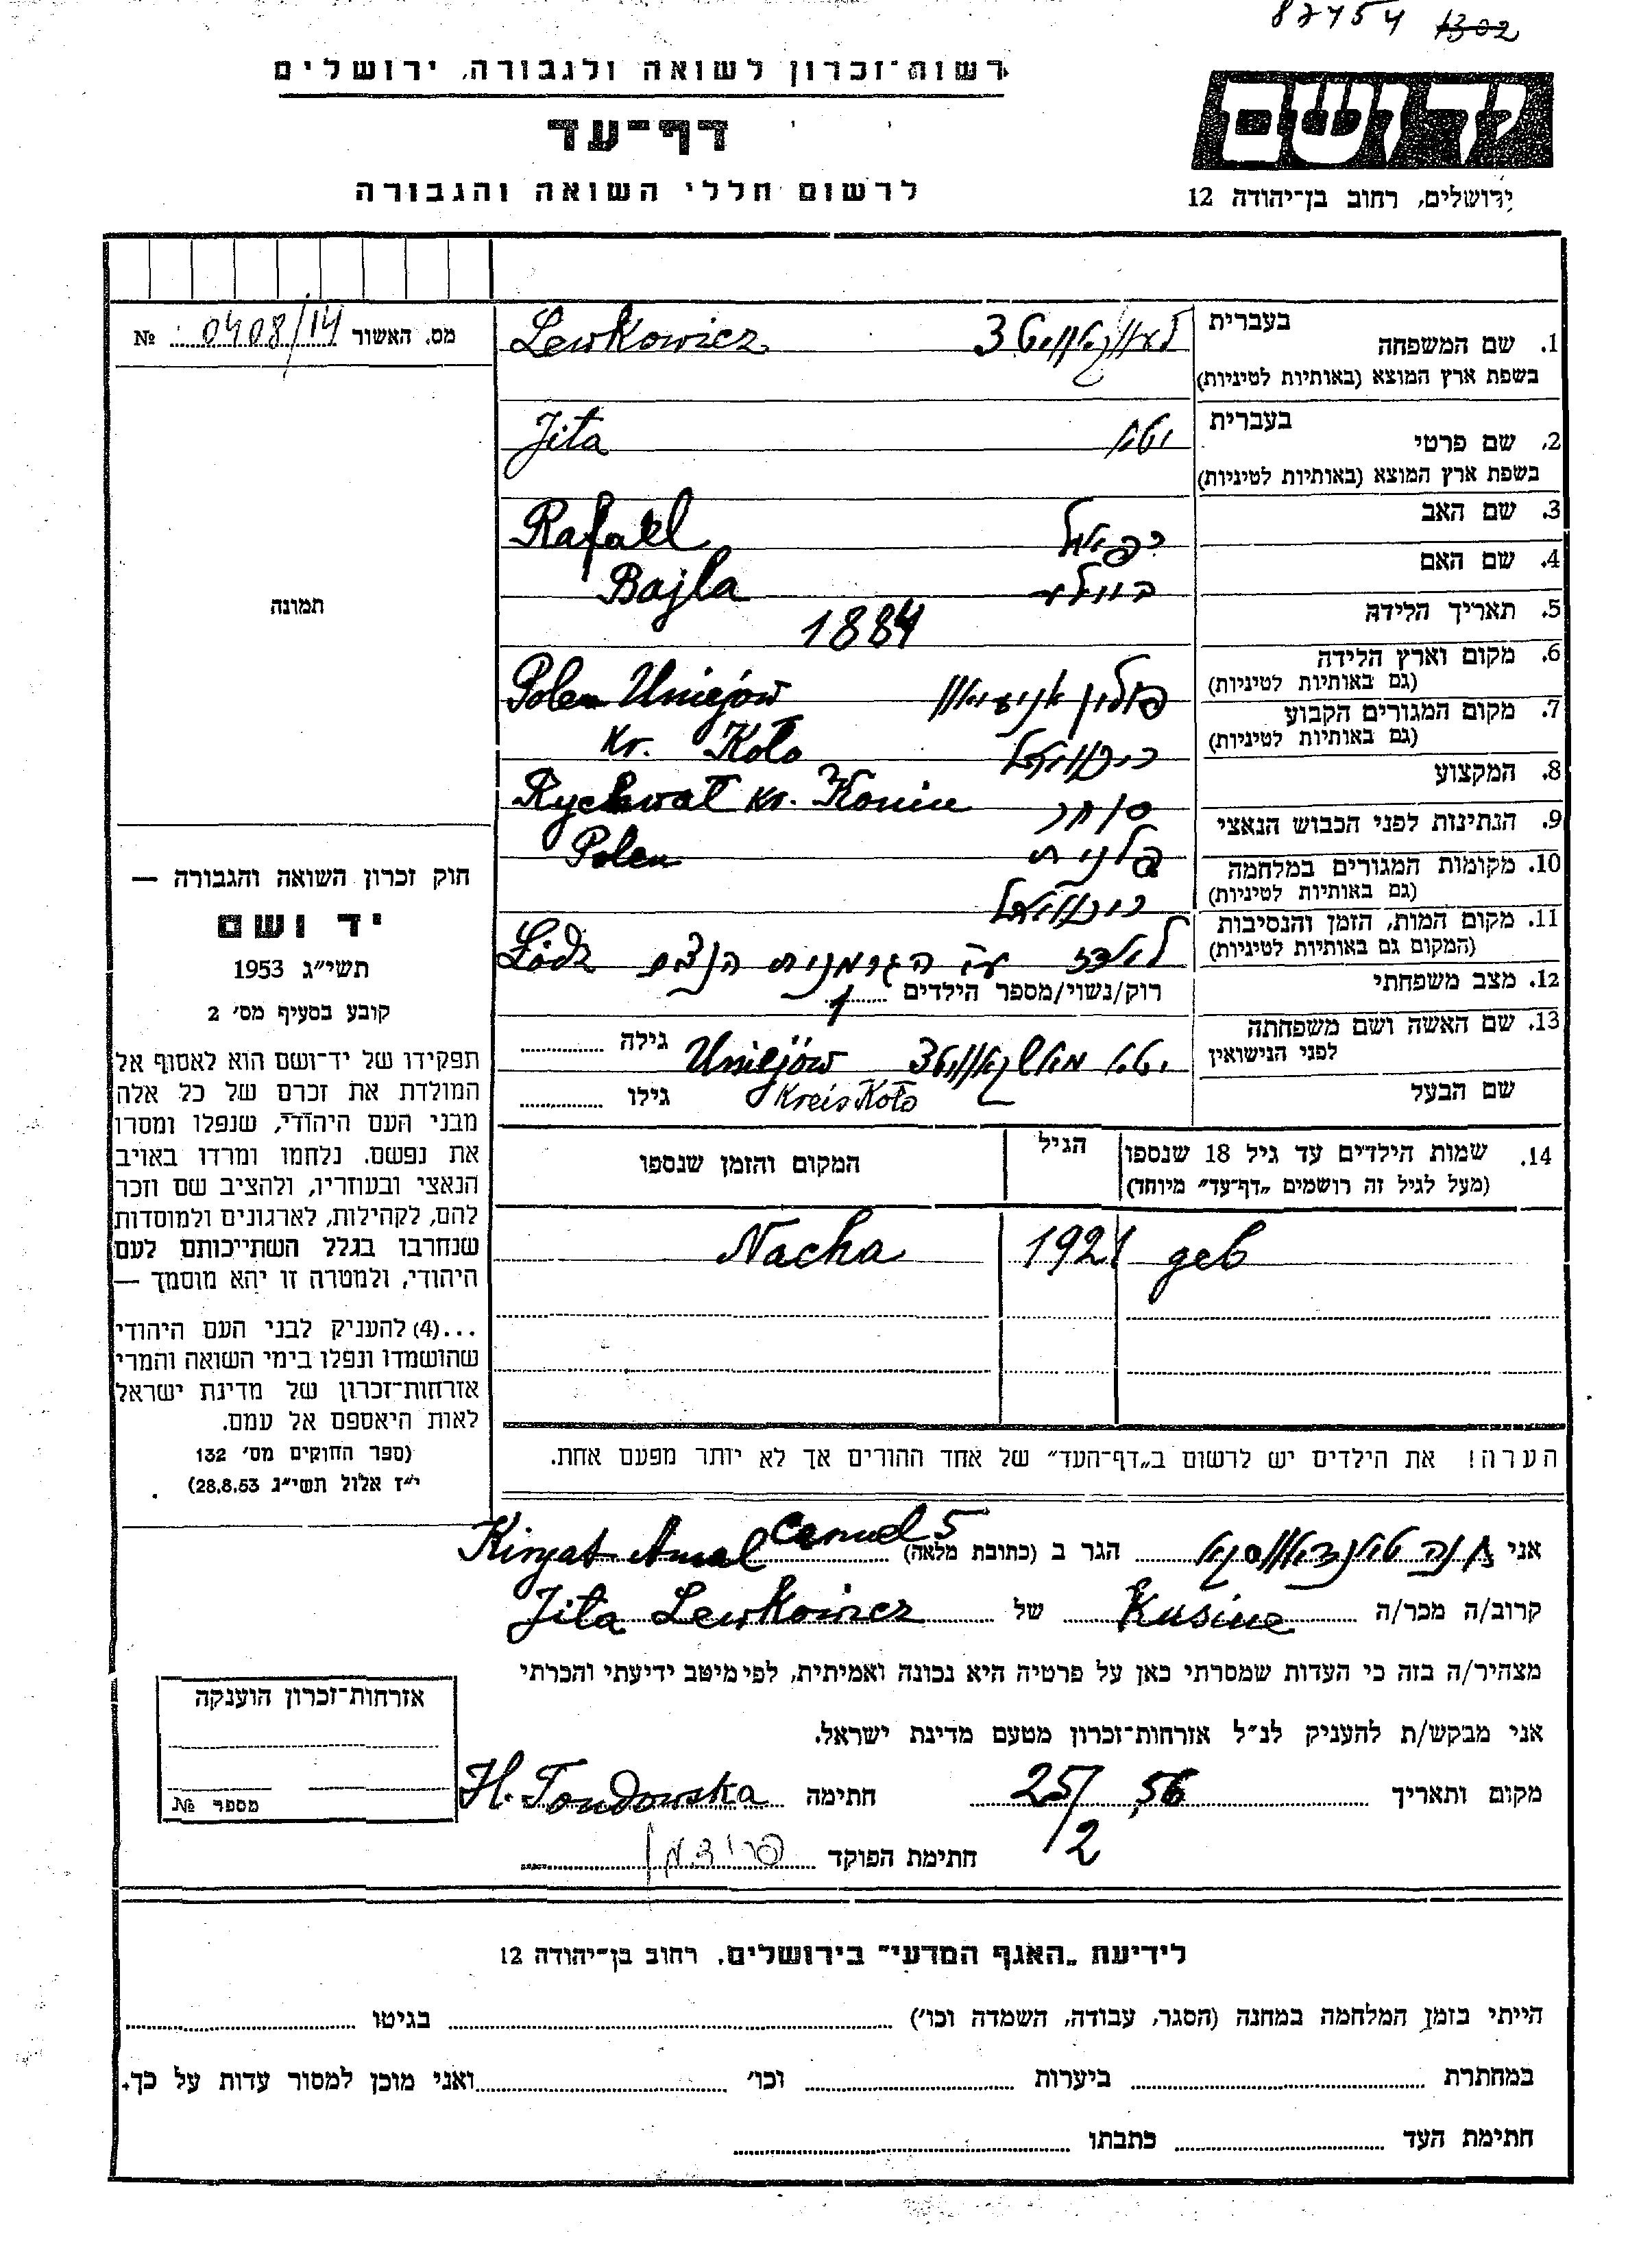 87454 1302
רשות־זכרון לשואה ולגבורה, ירושלים
דף־עד
לרשום חללי השואה והגבורה
יד ושם
ירושלים, רחוב בן־יהודה 12
מס. האשור 0408/14 №
1. שם המשפחה
בעברית
בשפת ארץ המוצא (באותיות לטיניות)
Lewkowicz
2. שם פרטי
בעברית
בשפת ארץ המוצא (באותיות לטיניות)
יטא Jita
3. שם האב
רפאל Rafael
4. שם האם
ביילע Bajla
5. תאריך הלידה
1884
6. מקום וארץ הלידה
(גם באותיות לטיניות)
פולין Polen Uniejów
Kr. Koło
7. מקום המגורים הקבוע
(גם באותיות לטיניות)
Rychwał kr. Konin
8. המקצוע
סוחר
9. הנתינות לפני הכבוש הנאצי
פלנית Polen
10. מקומות המגורים במלחמה
(גם באותיות לטיניות)
11. מקום המות, הזמן והנסיבות
(המקום גם באותיות לטיניות)
לאדז הגרמנית Łódz
12. מצב משפחתי
רוק/נשוי/מספר הילדים 1
13. שם האשה ושם משפחתה
לפני הנישואין
יטא Uniejów גילה
שם הבעל
Kreis Koło גילו
14. שמות הילדים עד גיל 18 שנספו
(מעל לגיל זה רושמים „דף־עד” מיוחד)
הגיל
המקום והזמן שנספו
geb 1921 Nacha
הערה! את הילדים יש לרשום ב„דף־העד” של אחד ההורים אך לא יותר מפעם אחת.
תמונה
חוק זכרון השואה והגבורה —
יד ושם
תשי״ג 1953
קובע בסעיף מס׳ 2
תפקידו של יד־ושם הוא לאסוף אל
המולדת את זכרם של כל אלה
מבני העם היהודי, שנפלו ומסרו
את נפשם, נלחמו ומרדו באויב
הנאצי ובעוזריו, ולהציב שם וזכר
להם, לקהילות, לארגונים ולמוסדות
שנחרבו בגלל השתייכותם לעם
היהודי, ולמטרה זו יהא מוסמך —
...(4) להעניק לבני העם היהודי
שהושמדו ונפלו בימי השואה והמרי
אזרחות־זכרון של מדינת ישראל
לאות היאספם אל עמם.
(ספר החוקים מס׳ 132
י״ז אלול תשי״ג 28.8.53)
אני חנה הגר ב (כתובת מלאה) Kirjat Amal 5
קרוב/ה מכר/ה Kusine של Jita Lewkowicz
מצהיר/ה בזה כי העדות שמסרתי כאן על פרטיה היא נכונה ואמיתית, לפי מיטב ידיעתי והכרתי
אני מבקש/ת להעניק לנ״ל אזרחות־זכרון מטעם מדינת ישראל.
מקום ותאריך 25/2 56 חתימה H. Tondowska
חתימת הפוקד פרידמן
אזרחות־זכרון הוענקה
מספר №
לידיעת „האגף המדעי” בירושלים, רחוב בן־יהודה 12
הייתי בזמן המלחמה במחנה (הסגר, עבודה, השמדה וכו׳) בגיטו
במחתרת ביערות וכו׳ ואני מוכן למסור עדות על כך.
חתימת העד כתבתו